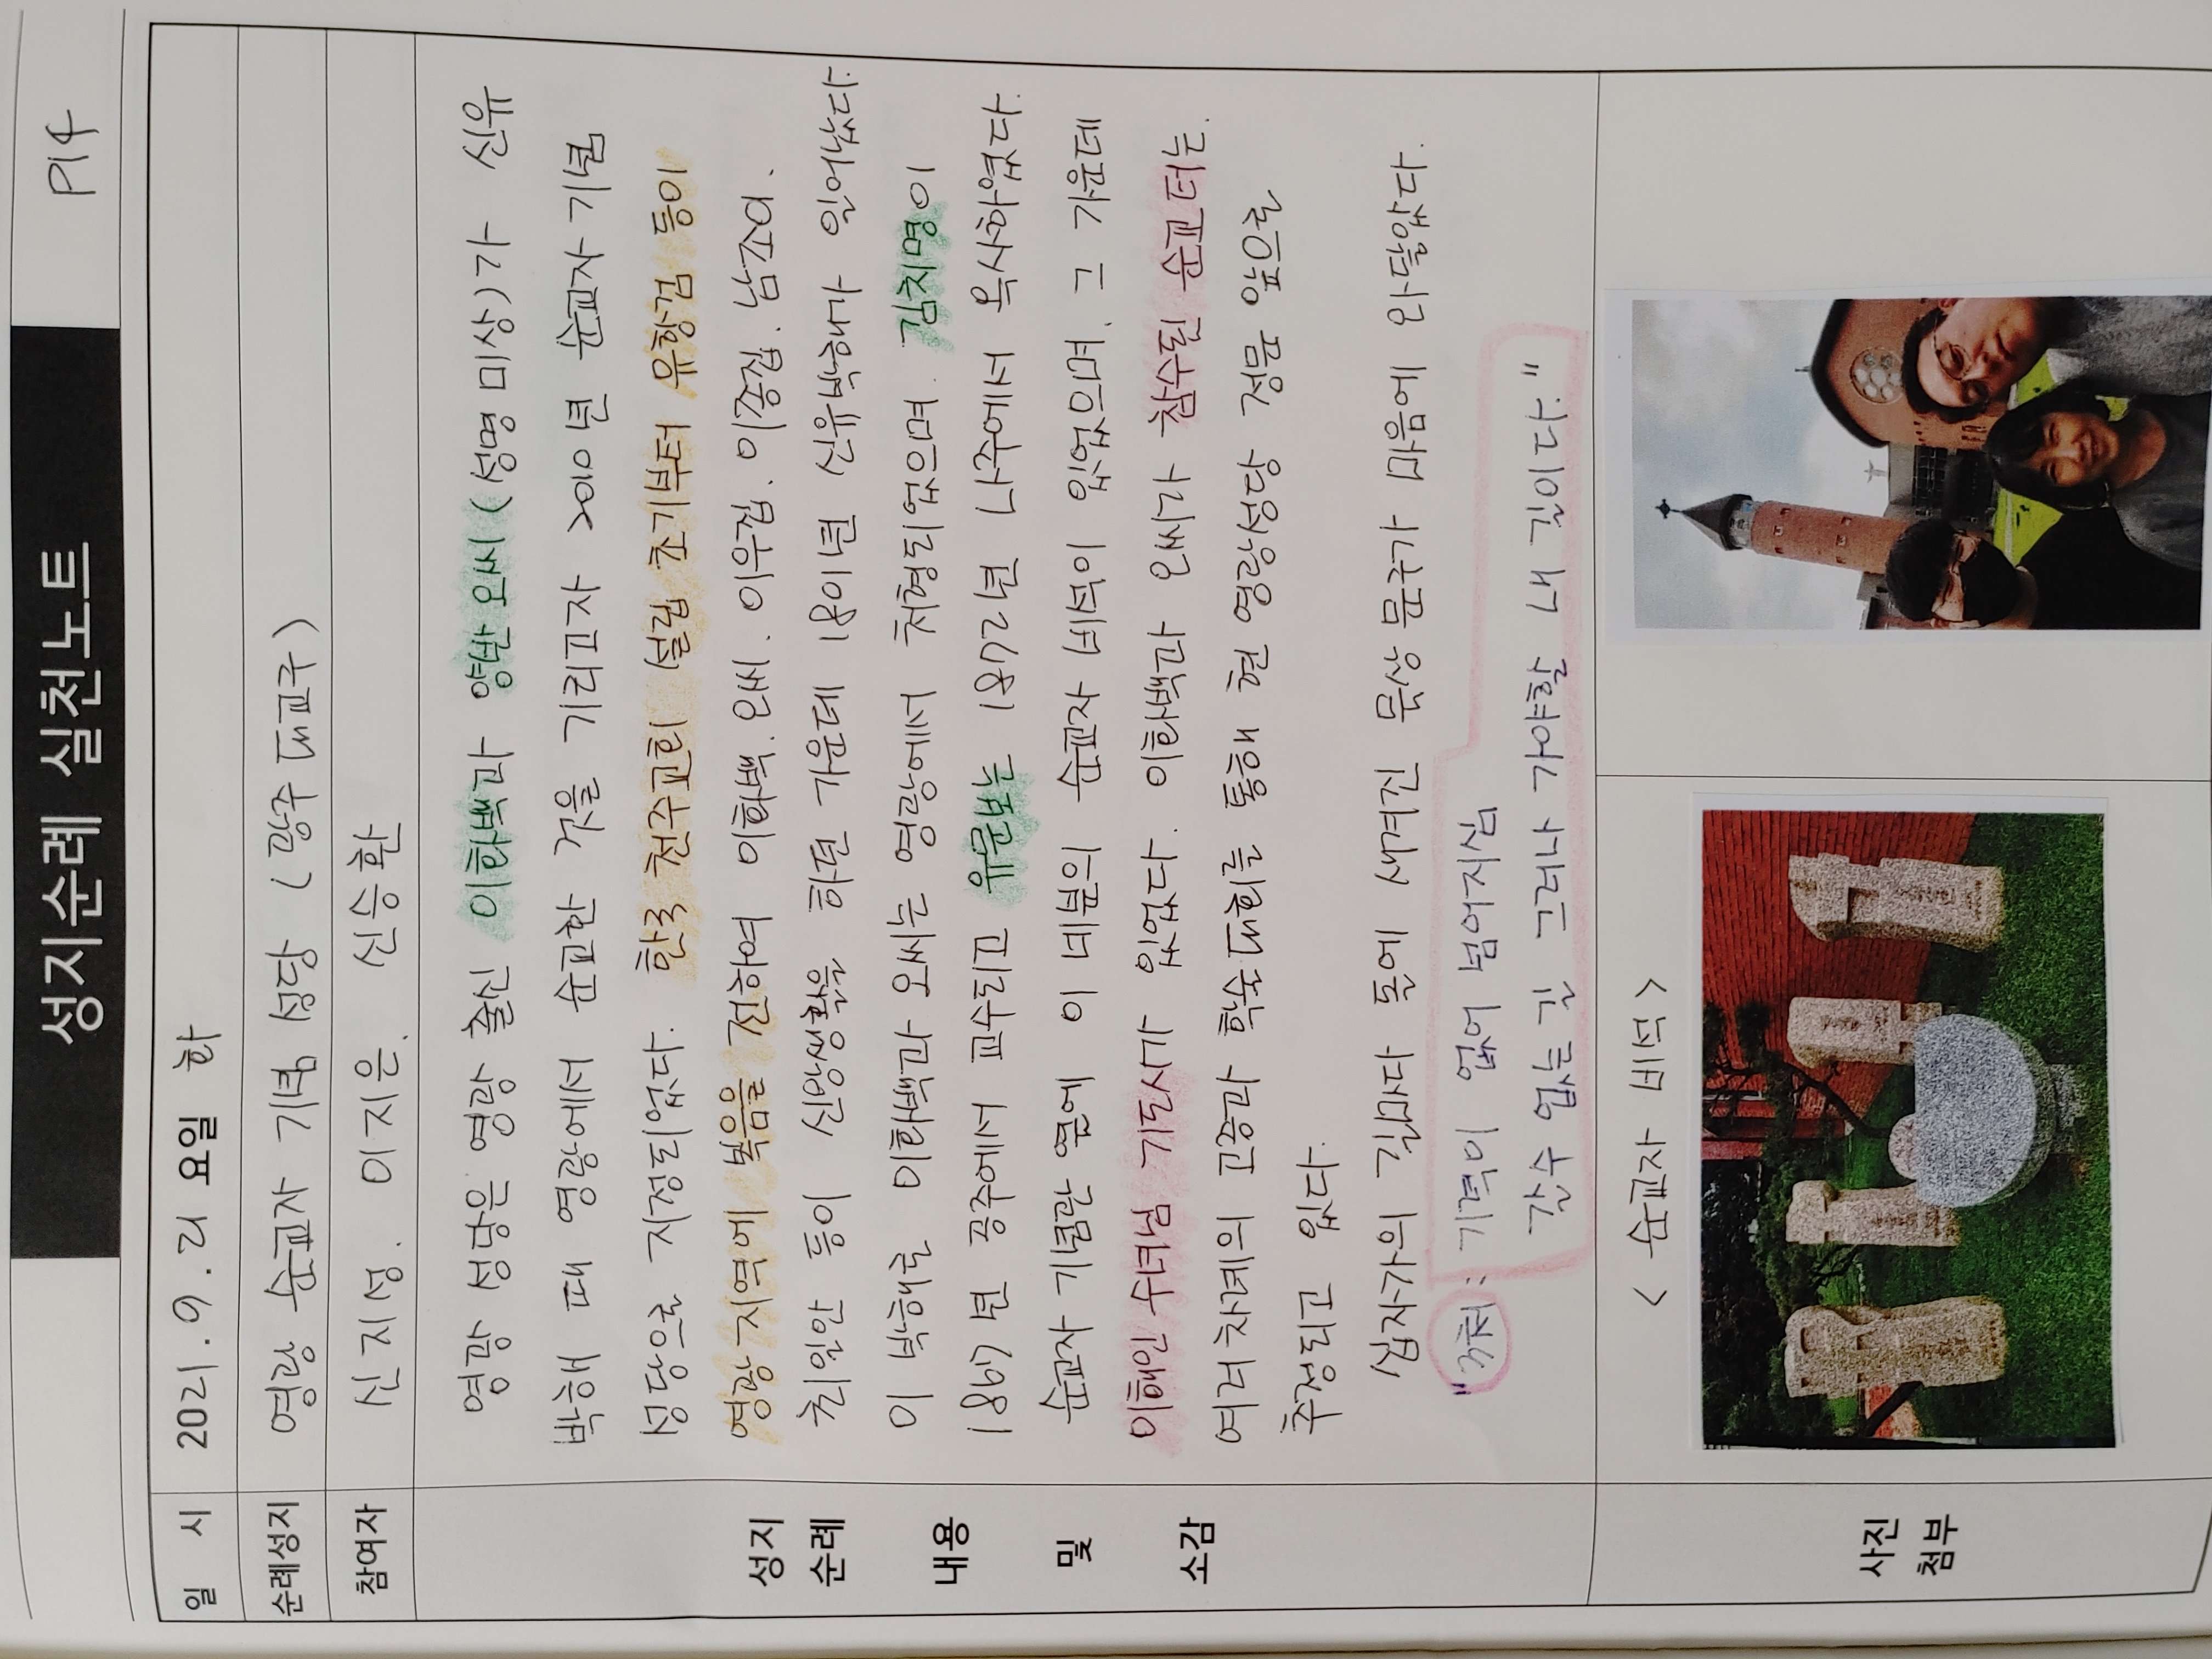 성지순례 실천노트
P14
일 시 2021. 9. 21 요일 화
순례성지 영광 순교자 기념 성당 (광주 대교구)
참여자 신지성. 이지은. 신승환
성지 순례 내용 및 소감
영광 성당은 영광 출신 이화백과 양반 오씨(성명 미상)가 신유
박해 때 영광에서 순교한 것을 기리고자 2010년 순교자 기념
성당으로 지정되었다. 한국 천주교회 설립 초기부터 유항검 등이
영광 지역에 복음을 전하여 이화백. 오씨. 이우집. 이종집. 남조이.
최일안 등이 신앙생활을 하던 가운데 1801년 신유박해가 일어났다.
이 박해로 이화백과 오씨는 영광에서 처형되었으며. 김치명이
1867년 공주에서 교수되고 유문보는 1872년 나주에서 옥사하였다.
순교자 기념관 옆에 이 네분의 순교자 비석이 있었으며. 그 가운데
이해인 수녀님 기도시가 있었다. 이화백과 오씨가 참수된 순교터는.
여러차례의 고증과 학술대회를 통해 현 영광성당 정문 앞으로
추정되고 있다.
십자가의 길마다 돌에 새겨진 묵상 문구가 마음에 와닿았다.
"3처: 기력이 없어 넘어지심
갈수 없는 길 그러나 가야할 내 길이다."
사진 첨부
< 순교자 비석 >